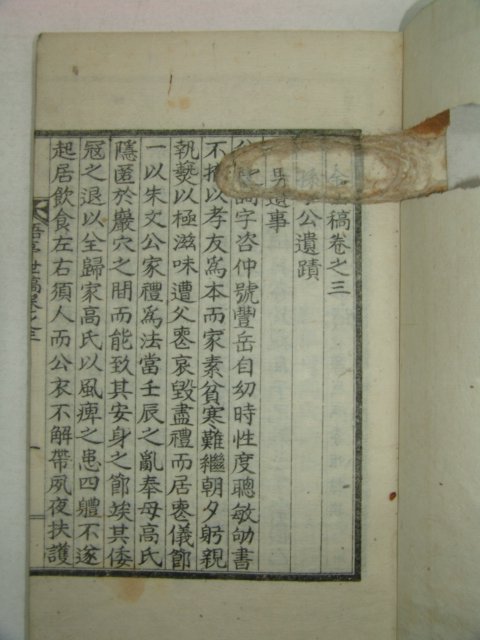 稿卷之三
公遺蹟
遺事
字咨仲號豐岳自幼時性度聰敏劬書
不以孝友爲本而家素貧寒難繼朝夕躬親
執藝以極滋味遭父喪哀毁盡禮而居喪儀節
一以朱文公家禮爲法當壬辰之亂奉母高氏
隱匿於巖穴之間而能致其安身之節竢其倭
冠之退以全歸家高氏以風痺之患四軆不遂
起居飮食左右須人而公衣不解帶夙夜扶護
世稿卷之三
一